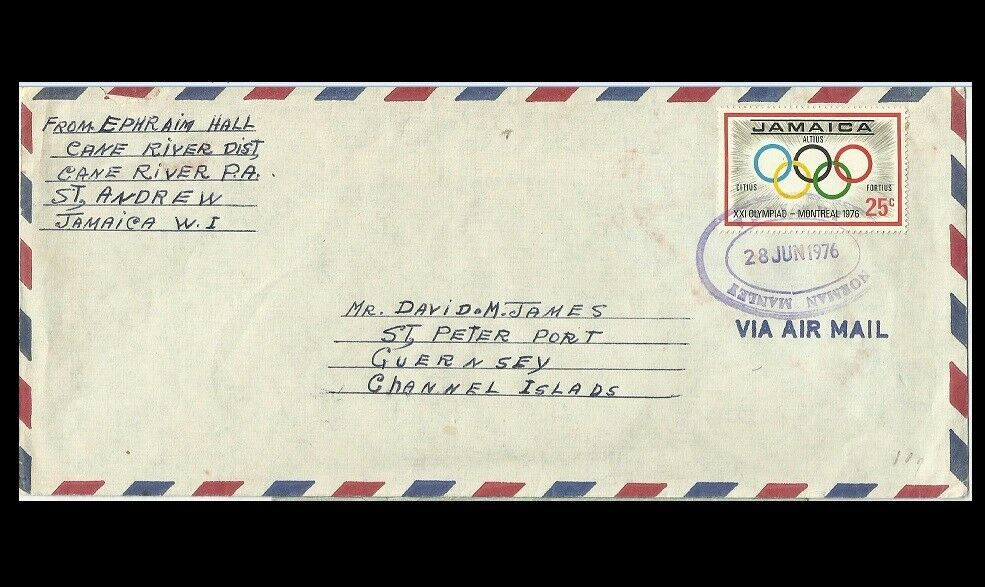 FROM EPHRAIM HALL
CANE RIVER DIST,
CANE RIVER P.A.
ST, ANDREW
JAMAICA W.I
JAMAICA
ALTIUS
CITIUS
FORTIUS
XXI OLYMPIAD – MONTREAL 1976 25c
28 JUN 1976
NORMAN MANLEY
VIA AIR MAIL
MR. DAVID.M.JAMES
ST, PETER PORT
GUERNSEY
CHANNEL ISLADS